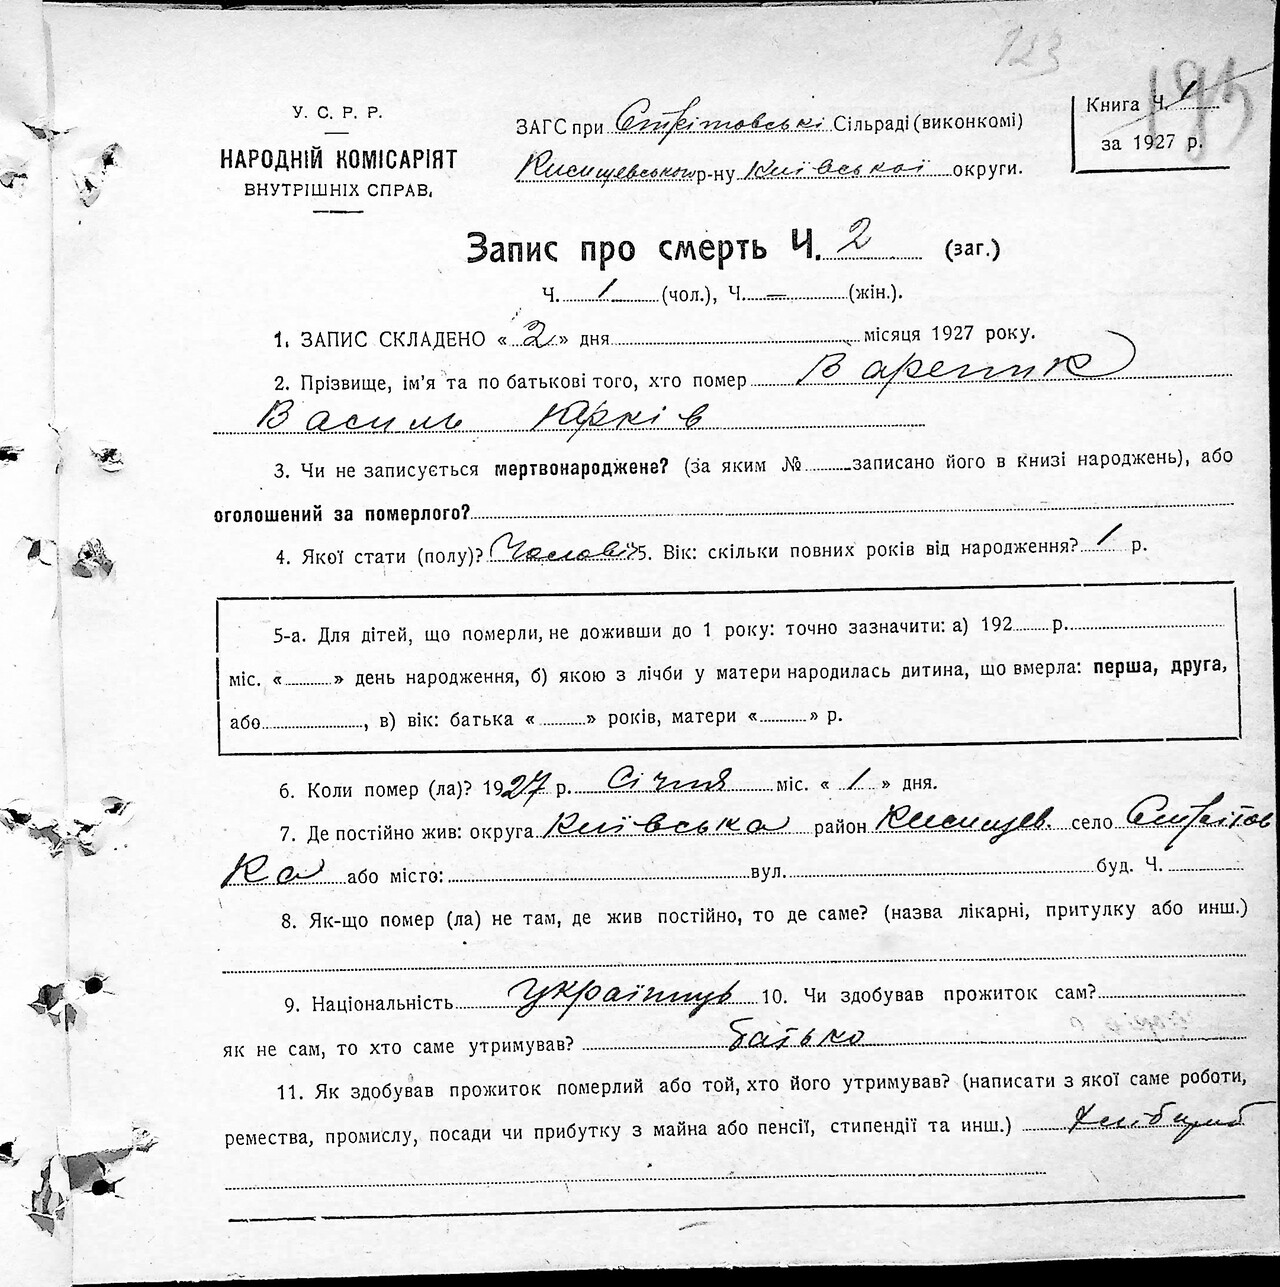 123
195
У. С. Р. Р.
НАРОДНІЙ КОМІСАРІЯТ
ВНУТРІШНІХ СПРАВ,
ЗАГС при Стрітовські Сільраді (виконкомі)
Кисищевськом р-ну Київської округи.
Книга Ч. 1
за 1927 р.
Запис про смерть Ч. 2 (заг.)
Ч. 1 (чол.), Ч. — (жін.).
1. ЗАПИС СКЛАДЕНО « 2 » дня місяця 1927 року.
2. Прізвище, ім'я та по батькові того, хто помер Вареник
Василь Юрків
3. Чи не записується мертвонароджене? (за яким № записано його в книзі народжень), або
оголошений за померлого?
4. Якої стати (полу)? Чоловіч 5. Вік: скільки повних років від народження? 1 р.
5-а. Для дітей, що померли, не доживши до 1 року: точно зазначити: а) 192 р.
міс. « » день народження, б) якою з лічби у матери народилась дитина, що вмерла: перша, друга,
або , в) вік: батька « » років, матери « » р.
6. Коли помер (ла)? 1927 р. Січня міс. « 1 » дня.
7. Де постійно жив: округа Київська район Кисищев. село Стрітов
ка або місто: вул. буд. Ч.
8. Як-що помер (ла) не там, де жив постійно, то де саме? (назва лікарні, притулку або инш.)
9. Національність українць 10. Чи здобував прожиток сам?
як не сам, то хто саме утримував? батько
11. Як здобував прожиток померлий або той, хто його утримував? (написати з якої саме роботи,
ремества, промислу, посади чи прибутку з майна або пенсії, стипендії та инш.)